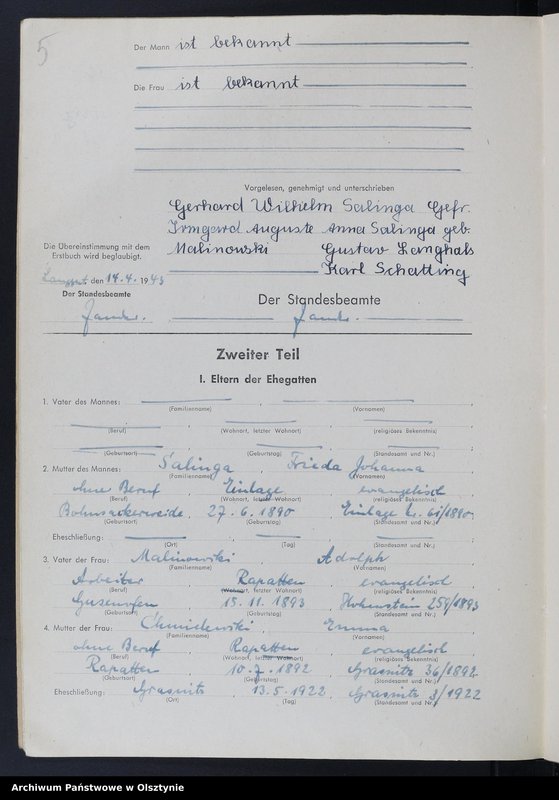 5
Der Mann ist bekannt
Die Frau ist bekannt
Vorgelesen, genehmigt und unterschrieben
Gerhard Wilhelm Salinga Gefr.
Irmgard Auguste Anna Salinga geb.
Malinowski Gustav Langhals
Karl Schatting
Die Übereinstimmung mit dem
Erstbuch wird beglaubigt.
den 14.4. 1943
Der Standesbeamte
Der Standesbeamte
Zweiter Teil
I. Eltern der Ehegatten
1. Vater des Mannes: ,
(Familienname) (Vornamen)
(Beruf) (Wohnort, letzter Wohnort) (religiöses Bekenntnis)
(Geburtsort) (Geburtstag) (Standesamt und Nr.)
2. Mutter des Mannes: Salinga , Frieda Johanna
(Familienname) (Vornamen)
ohne Beruf , Einlage , evangelisch
(Beruf) (Wohnort, letzter Wohnort) (religiöses Bekenntnis)
Bohnsackerweide 27.6.1890 Einlage Nr. 61/1890
(Geburtsort) (Geburtstag) (Standesamt und Nr.)
Eheschließung:
(Ort) (Tag) (Standesamt und Nr.)
3. Vater der Frau: Malinowski , Adolph
(Familienname) (Vornamen)
Arbeiter Rapatten evangelisch
(Beruf) (Wohnort, letzter Wohnort) (religiöses Bekenntnis)
15.11.1893 Hohenstein 259/1893
(Geburtsort) (Geburtstag) (Standesamt und Nr.)
4. Mutter der Frau: Chmielewski , Emma
(Familienname) (Vornamen)
ohne Beruf Rapatten evangelisch
(Beruf) (Wohnort, letzter Wohnort) (religiöses Bekenntnis)
Rapatten 10.7.1892 Grasnitz 36/1892
(Geburtsort) (Geburtstag) (Standesamt und Nr.)
Eheschließung: Grasnitz , 13.5.1922 Grasnitz 3/1922
(Ort) (Tag) (Standesamt und Nr.)
Archiwum Państwowe w Olsztynie